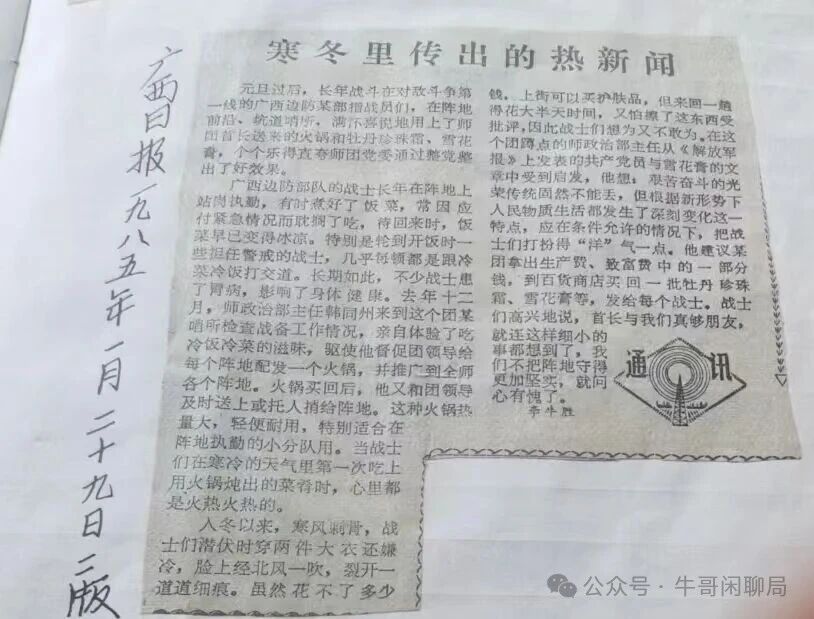 广西日报一九八五年一月二十九日二版
寒冬里传出的热新闻
元旦过后，长年战斗在对敌斗争第
一线的广西边防某部指战员们，在阵地
前沿、坑道哨所，满怀喜悦地用上了师
团首长送来的火锅和牡丹珍珠霜、雪花
膏，个个乐得直夸师团党委通过整党整
出了好效果。
广西边防部队的战士长年在阵地上
站岗执勤，有时煮好了饭菜，常因应
付紧急情况而耽搁了吃，待回来时，饭
菜早已变得冰凉。特别是轮到开饭时一
些担任警戒的战士，几乎每顿都是跟冷
菜冷饭打交道。长期如此，不少战士患
了胃病，影响了身体健康。去年十二
月，师政治部主任韩同州来到这个团某
哨所检查战备工作情况，亲自体验了吃
冷饭冷菜的滋味，驱使他督促团领导给
每个阵地配发一个火锅，并推广到全师
各个阵地。火锅买回后，他又和团领导
及时送上或托人捎给阵地。这种火锅热
量大，轻便耐用，特别适合在
阵地执勤的小分队用。当战士
们在寒冷的天气里第一次吃上
用火锅炖出的菜肴时，心里都
是火热火热的。
入冬以来，寒风刺骨，战
士们潜伏时穿两件大衣还嫌
冷，脸上经北风一吹，裂开一
道道细痕。虽然花不了多少
钱，上街可以买护肤品，但来回一趟
得花大半天时间，又怕擦了这东西受
批评，因此战士们想为又不敢为。在这
个团蹲点的师政治部主任从《解放军
报》上发表的共产党员与雪花膏的文
章中受到启发，他想：艰苦奋斗的光
荣传统固然不能丢，但根据新形势下
人民物质生活都发生了深刻变化这一
特点，应在条件允许的情况下，把战
士们打扮得“洋”气一点。他建议某
团拿出生产费、致富费中的一部分
钱，到百货商店买回一批牡丹珍珠
霜、雪花膏等，发给每个战士。战士
们高兴地说，首长与我们真够朋友，
就连这样细小的
事都想到了，我
们不把阵地守得
更加坚实，就问
心有愧了。
李牛胜
通讯
公众号·牛哥闲聊局